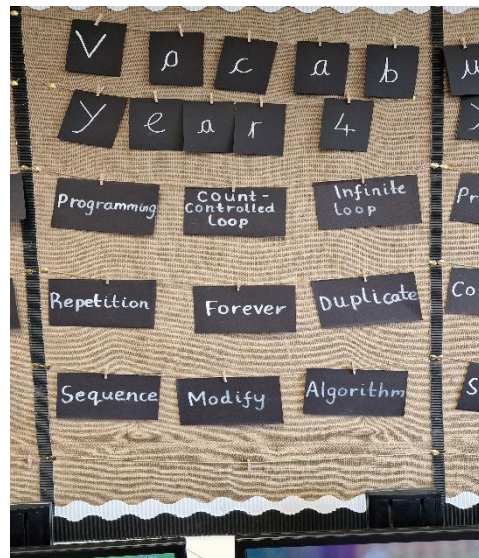 Vocab
Year 4
Programming
Count-
Controlled
loop
Infinite
loop
Repetition
Forever
Duplicate
Sequence
Modify
Algorithm